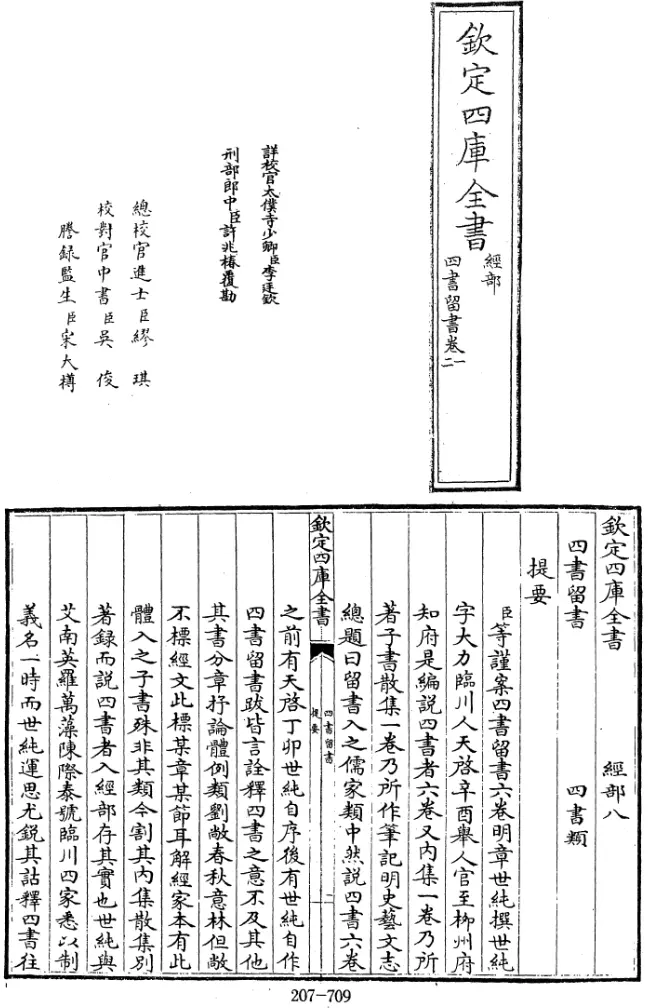 欽定四庫全書
經部
四書留書卷一二
詳校官太僕寺少卿臣李廷欽
刑部郎中臣許兆椿覆勘
總校官進士臣繆琪
校對官中書臣吳俊
謄錄監生臣宋大樽
欽定四庫全書 經部八
四書留書 四書類
提要
臣等謹案四書留書六卷明章世純撰世純
字大力臨川人天啓辛酉舉人官至柳州府
知府是編說四書者六卷又內集一卷乃所
著子書散集一卷乃所作筆記明史藝文志
總題曰留書入之儒家類中然說四書六卷
欽定四庫全書
四書留書
提要
二
之前有天啓丁卯世純自序後有世純自作
四書留書跋皆言詮釋四書之意不及其他
其書分章抒論體例類劉敞春秋意林但敞
不標經文此標某章某節耳解經家本有此
體入之子書殊非其類今割其內集散集別
著錄而說四書者入經部存其實也世純與
艾南英羅萬藻陳際泰號臨川四家悉以制
義名一時而世純運思尤銳其詁釋四書往
207-709